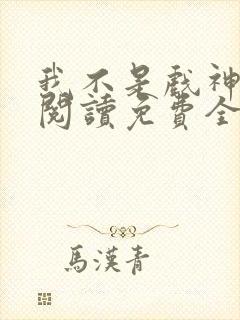 我不是戲神
閱讀免費全
馬漢青